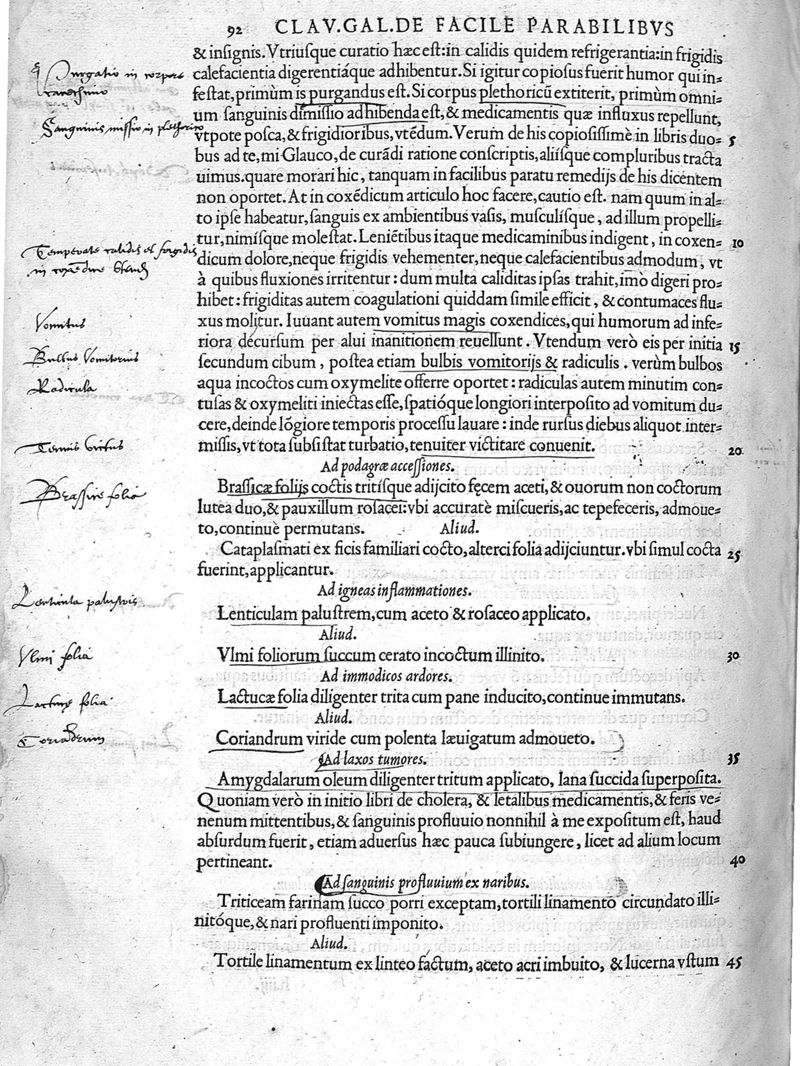 92 CLAV.GAL.DE FACILE PARABILIBVS
& insignis. Vtriusque curatio hæc est: in calidis quidem refrigerantia: in frigidis
calefacientia digerentiáque adhibentur. Si igitur copiosus fuerit humor qui in=
festat, primùm is purgandus est. Si corpus plethoricũ extiterit, primùm omni=
um sanguinis dimissio adhibenda est, & medicamentis quæ influxus repellunt,
vtpote posca, & frigidioribus, vtẽdum. Verum de his copiosissimè in libris duo= 5
bus ad te, mi Glauco, de curãdi ratione conscriptis, aliísque compluribus tracta
uimus. quare morari hic, tanquam in facilibus paratu remedijs de his dicentem
non oportet. At in coxẽdicum articulo hoc facere, cautio est. nam quum in al=
to ipse habeatur, sanguis ex ambientibus vasis, musculísque, ad illum propelli=
tur, nimísque molestat. Leniẽtibus itaque medicaminibus indigent, in coxen= 10
dicum dolore, neque frigidis vehementer, neque calefacientibus admodum, vt
à quibus fluxiones irritentur: dum multa caliditas ipsas trahit, imò digeri pro=
hibet: frigiditas autem coagulationi quiddam simile efficit, & contumaces flu=
xus molitur. Iuuant autem vomitus magis coxendices, qui humorum ad infe=
riora decursum per alui inanitionem reuellunt. Vtendum verò eis per initia 15
secundum cibum, postea etiam bulbis vomitorijs & radiculis. verùm bulbos
aqua incoctos cum oxymelite offerre oportet: radiculas autem minutim con=
tusas & oxymeliti iniectas esse, spatióque longiori interposito ad vomitum du=
cere, deinde lõgiore temporis processu lauare: inde rursus diebus aliquot inter=
missis, vt tota subsistat turbatio, tenuiter victitare conuenit. 20
Ad podagræ accessiones.
Brassicæ folijs coctis tritísque adijcito fęcem aceti, & ouorum non coctorum
lutea duo, & pauxillum rosacei: vbi accuratè miscueris, ac tepefeceris, admoue=
to, continuè permutans. Aliud.
Cataplasmati ex ficis familiari cocto, alterci folia adijciuntur. vbi simul cocta 25
fuerint, applicantur.
Ad igneas inflammationes.
Lenticulam palustrem, cum aceto & rosaceo applicato.
Aliud.
Vlmi foliorum succum cerato incoctum illinito. 30
Ad immodicos ardores.
Lactucæ folia diligenter trita cum pane inducito, continue immutans.
Aliud.
Coriandrum viride cum polenta læuigatum admoueto.
Ad laxos tumores. 35
Amygdalarum oleum diligenter tritum applicato, lana succida superposita.
Quoniam verò in initio libri de cholera, & letalibus medicamentis, & feris ve=
nenum mittentibus, & sanguinis profluuio nonnihil à me expositum est, haud
absurdum fuerit, etiam aduersus hæc pauca subiungere, licet ad alium locum
pertineant. 40
Ad sanguinis profluuium ex naribus.
Triticeam farinam succo porri exceptam, tortili linamento circundato illi=
nitóque, & nari profluenti imponito.
Aliud.
Tortile linamentum ex linteo factum, aceto acri imbuito, & lucerna vstum 45
Purgatio in corpore
Sanguinis missio in plethorico
Temperate calidis et frigidis
Vomitus
Bulbus Vomitorius
Radicula
Tenuis victus
Brassice folia
Lenticula palustris
Vlmi folia
Lactuce folia
Coriandrum